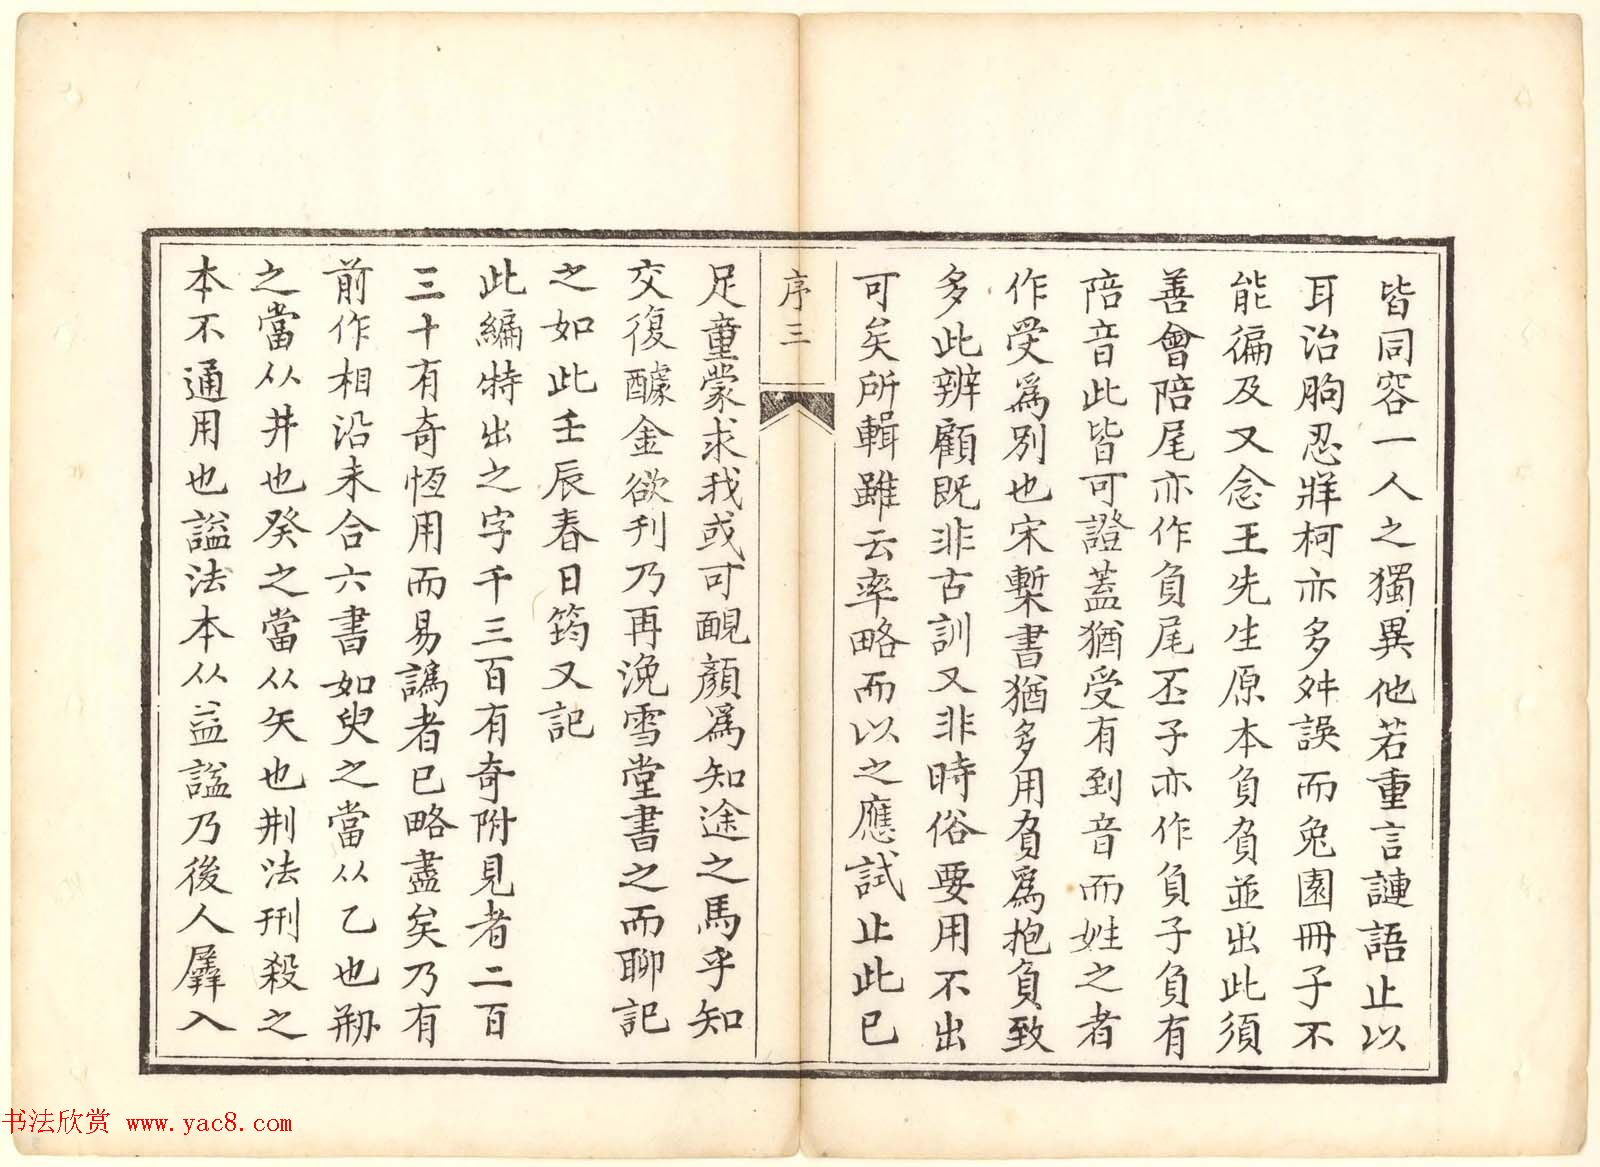 皆同容一人之獨異他若重言謰語止以
耳治朐忍牂柯亦多舛誤而兔園冊子不
能徧及又念王先生原本負負並出此須
善會陪尾亦作負尾丕子亦作負子負有
陪音此皆可證蓋猶受有到音而姓之者
作受爲別也宋槧書猶多用負爲抱負致
多此辨顧既非古訓又非時俗要用不出
可矣所輯雖云率略而以之應試止此已
序三
足童蒙求我或可靦顏爲知途之馬乎知
交復醵金欲刊乃再浼雪堂書之而聊記
之如此壬辰春日筠又記
此編特出之字千三百有奇附見者二百
三十有奇恆用而易譌者已略盡矣乃有
前作相沿未合六書如臾之當从乙也刱
之當从井也癸之當从矢也荆法刑殺之
本不通用也謚法本从益諡乃後人羼入
书法欣赏 www.yac8.com